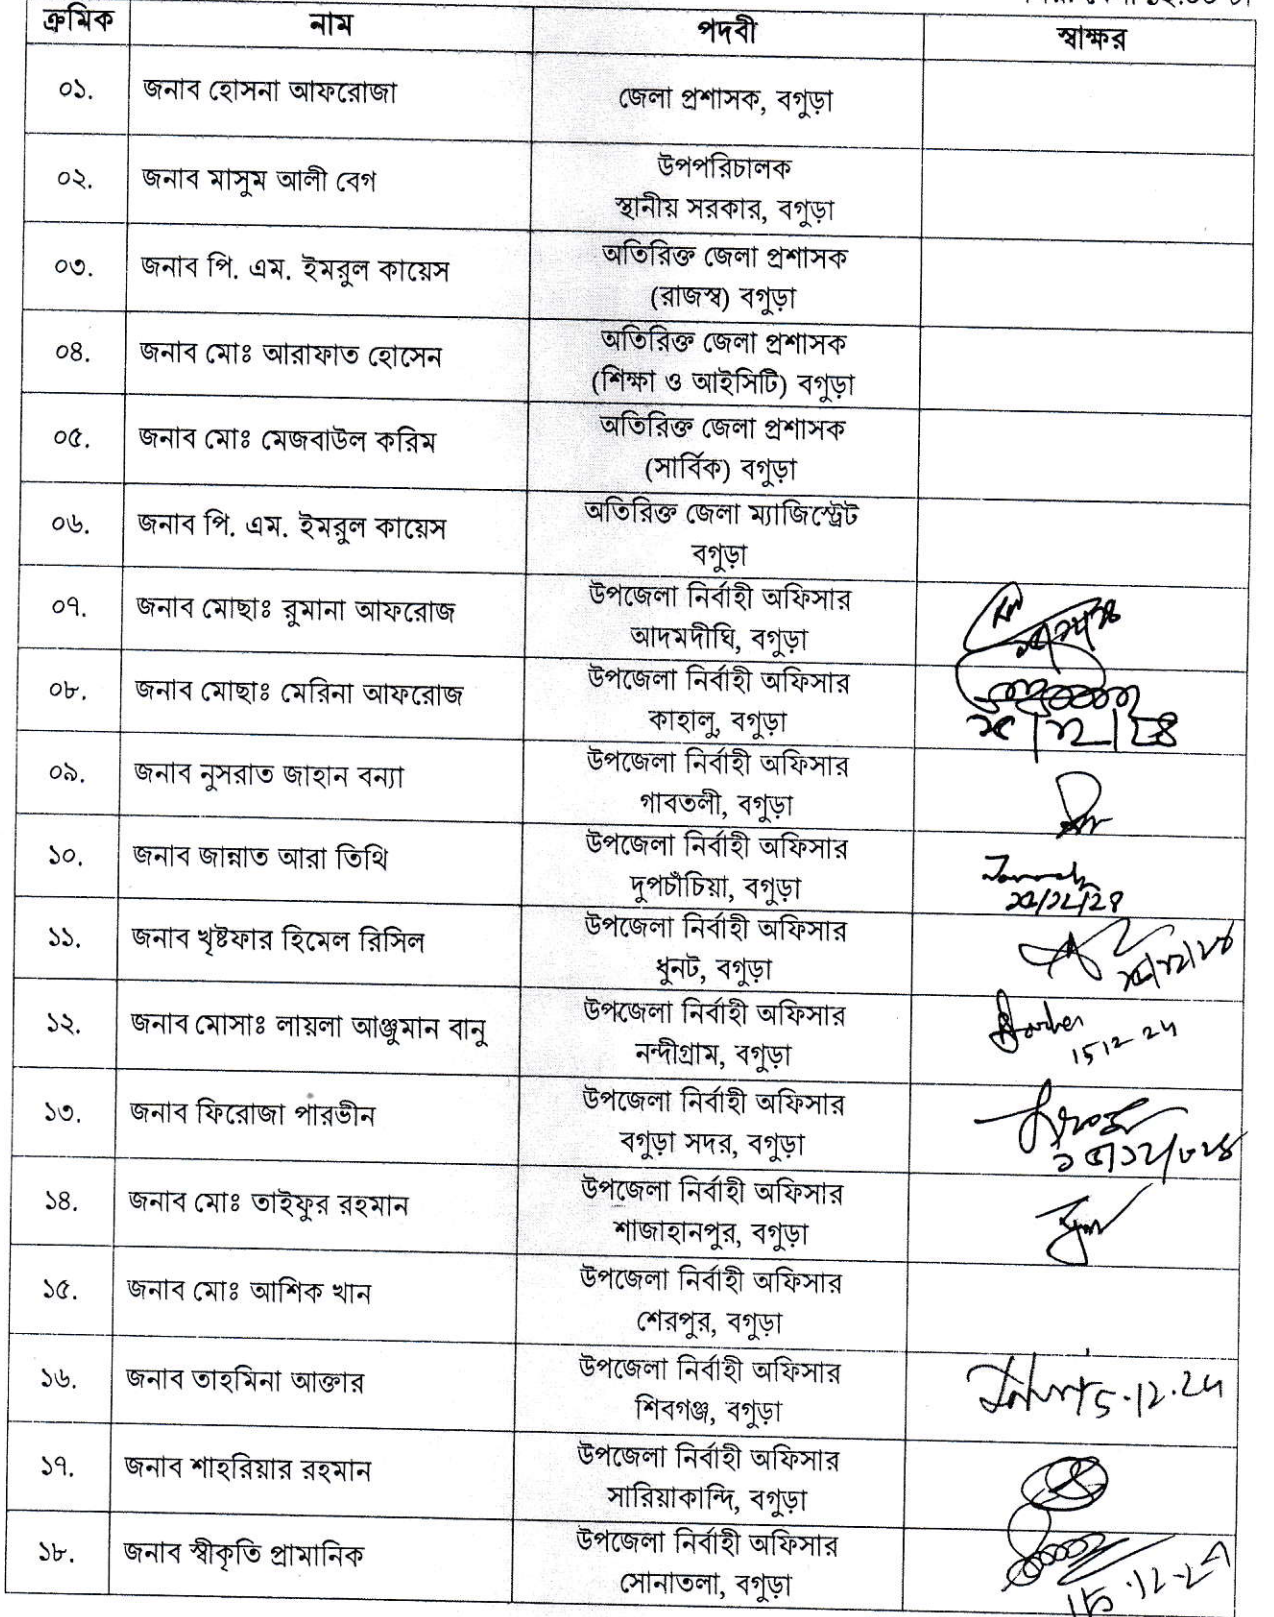 ক্রমিক নাম পদবী স্বাক্ষর
০১. জনাব হোসনা আফরোজা জেলা প্রশাসক, বগুড়া
০২. জনাব মাসুম আলী বেগ উপপরিচালক
স্থানীয় সরকার, বগুড়া
০৩. জনাব পি. এম. ইমরুল কায়েস অতিরিক্ত জেলা প্রশাসক
(রাজস্ব) বগুড়া
০৪. জনাব মোঃ আরাফাত হোসেন অতিরিক্ত জেলা প্রশাসক
(শিক্ষা ও আইসিটি) বগুড়া
০৫. জনাব মোঃ মেজবাউল করিম অতিরিক্ত জেলা প্রশাসক
(সার্বিক) বগুড়া
০৬. জনাব পি. এম. ইমরুল কায়েস অতিরিক্ত জেলা ম্যাজিস্ট্রেট
বগুড়া
০৭. জনাব মোছাঃ রুমানা আফরোজ উপজেলা নির্বাহী অফিসার
আদমদীঘি, বগুড়া
০৮. জনাব মোছাঃ মেরিনা আফরোজ উপজেলা নির্বাহী অফিসার
কাহালু, বগুড়া ১৫/১২/২৪
০৯. জনাব নুসরাত জাহান বন্যা উপজেলা নির্বাহী অফিসার
গাবতলী, বগুড়া
১০. জনাব জান্নাত আরা তিথি উপজেলা নির্বাহী অফিসার
দুপচাঁচিয়া, বগুড়া ১৫/১২/২৪
১১. জনাব খৃষ্টফার হিমেল রিসিল উপজেলা নির্বাহী অফিসার
ধুনট, বগুড়া ১৫/১২/২৪
১২. জনাব মোসাঃ লায়লা আঞ্জুমান বানু উপজেলা নির্বাহী অফিসার
নন্দীগ্রাম, বগুড়া 15 12-24
১৩. জনাব ফিরোজা পারভীন উপজেলা নির্বাহী অফিসার
বগুড়া সদর, বগুড়া
১৪. জনাব মোঃ তাইফুর রহমান উপজেলা নির্বাহী অফিসার
শাজাহানপুর, বগুড়া
১৫. জনাব মোঃ আশিক খান উপজেলা নির্বাহী অফিসার
শেরপুর, বগুড়া
১৬. জনাব তাহমিনা আক্তার উপজেলা নির্বাহী অফিসার 15.12.24
শিবগঞ্জ, বগুড়া
১৭. জনাব শাহরিয়ার রহমান উপজেলা নির্বাহী অফিসার
সারিয়াকান্দি, বগুড়া
১৮. জনাব স্বীকৃতি প্রামানিক উপজেলা নির্বাহী অফিসার
সোনাতলা, বগুড়া 15.12-24